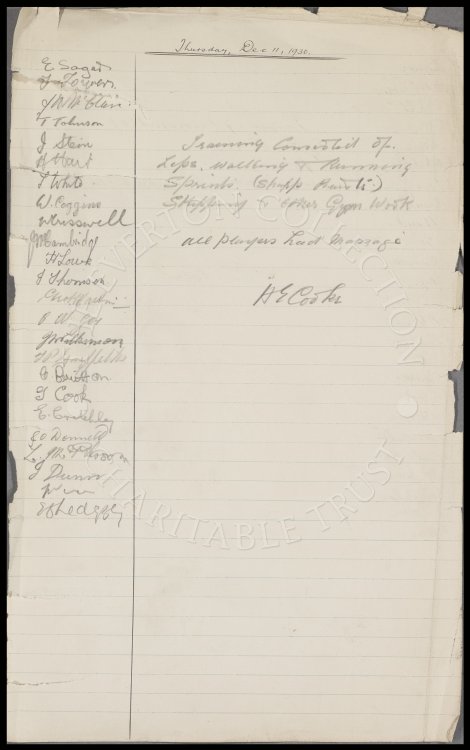 Thursday, Dec 11, 1930.
E Sagar
J McClure
T Johnson
J Stein
D Hart
T White
W. Coggins
W Cresswell
H Lowe
J Thomson
T P Griffiths
C Britton
T Cook
E. Critchley
J O Donnell
L. McPherson
J Dunn
Training Consisted of.
Laps. Walking & Running
Sprints. (Sharp Bursts.)
Skipping & other Gym Work
All players had Massage
H E Cooke
EVERTON COLLECTION
CHARITABLE TRUST